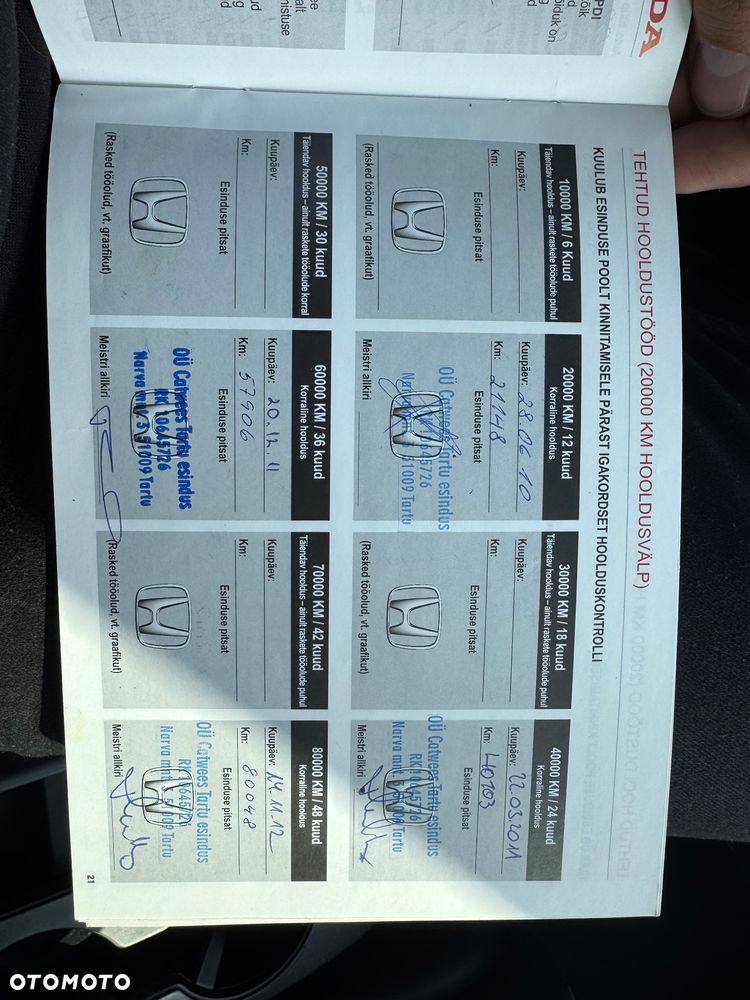 TEHTUD HOOLDUSTÖÖD (20000 KM HOOLDUSVÄLP)
KUULUB ESINDUSE POOLT KINNITAMISELE PÄRAST IGAKORDSET HOOLDUSKONTROLLI
10000 KM / 6 Kuud
Täiendav hooldus – ainult raskete tööolude puhul
Kuupäev:
Km:
Esinduse pitsat
(Rasked tööolud, vt. graafikut)
20000 KM / 12 kuud
Korraline hooldus
Kuupäev: 28.06 10
Km: 21148
Esinduse pitsat
OÜ Catwees Tartu esindus
Meistri allkiri
30000 KM / 18 kuud
Täiendav hooldus – ainult raskete tööolude puhul
Kuupäev:
Km:
Esinduse pitsat
(Rasked tööolud, vt. graafikut)
40000 KM / 24 kuud
Korraline hooldus
Kuupäev: 22.03.2011
Km: 40103
Esinduse pitsat
OÜ Catwees Tartu esindus
Meistri allkiri
50000 KM / 30 kuud
Täiendav hooldus – ainult raskete tööolude korral
Kuupäev:
Km:
Esinduse pitsat
(Rasked tööolud, vt. graafikut)
60000 KM / 36 kuud
Korraline hooldus
Kuupäev: 20.12.11
Km: 57906
Esinduse pitsat
OÜ Catwees Tartu esindus
RK 10645726
Narva mnt. 51009 Tartu
Meistri allkiri
70000 KM / 42 kuud
Täiendav hooldus – ainult raskete tööolude puhul
Kuupäev:
Km:
Esinduse pitsat
(Rasked tööolud, vt. graafikut)
80000 KM / 48 kuud
Korraline hooldus
Kuupäev: 14.11.12
Km: 80048
Esinduse pitsat
OÜ Catwees Tartu esindus
RK 10645726
Narva mnt. 51009 Tartu
Meistri allkiri
21
OTOMOTO